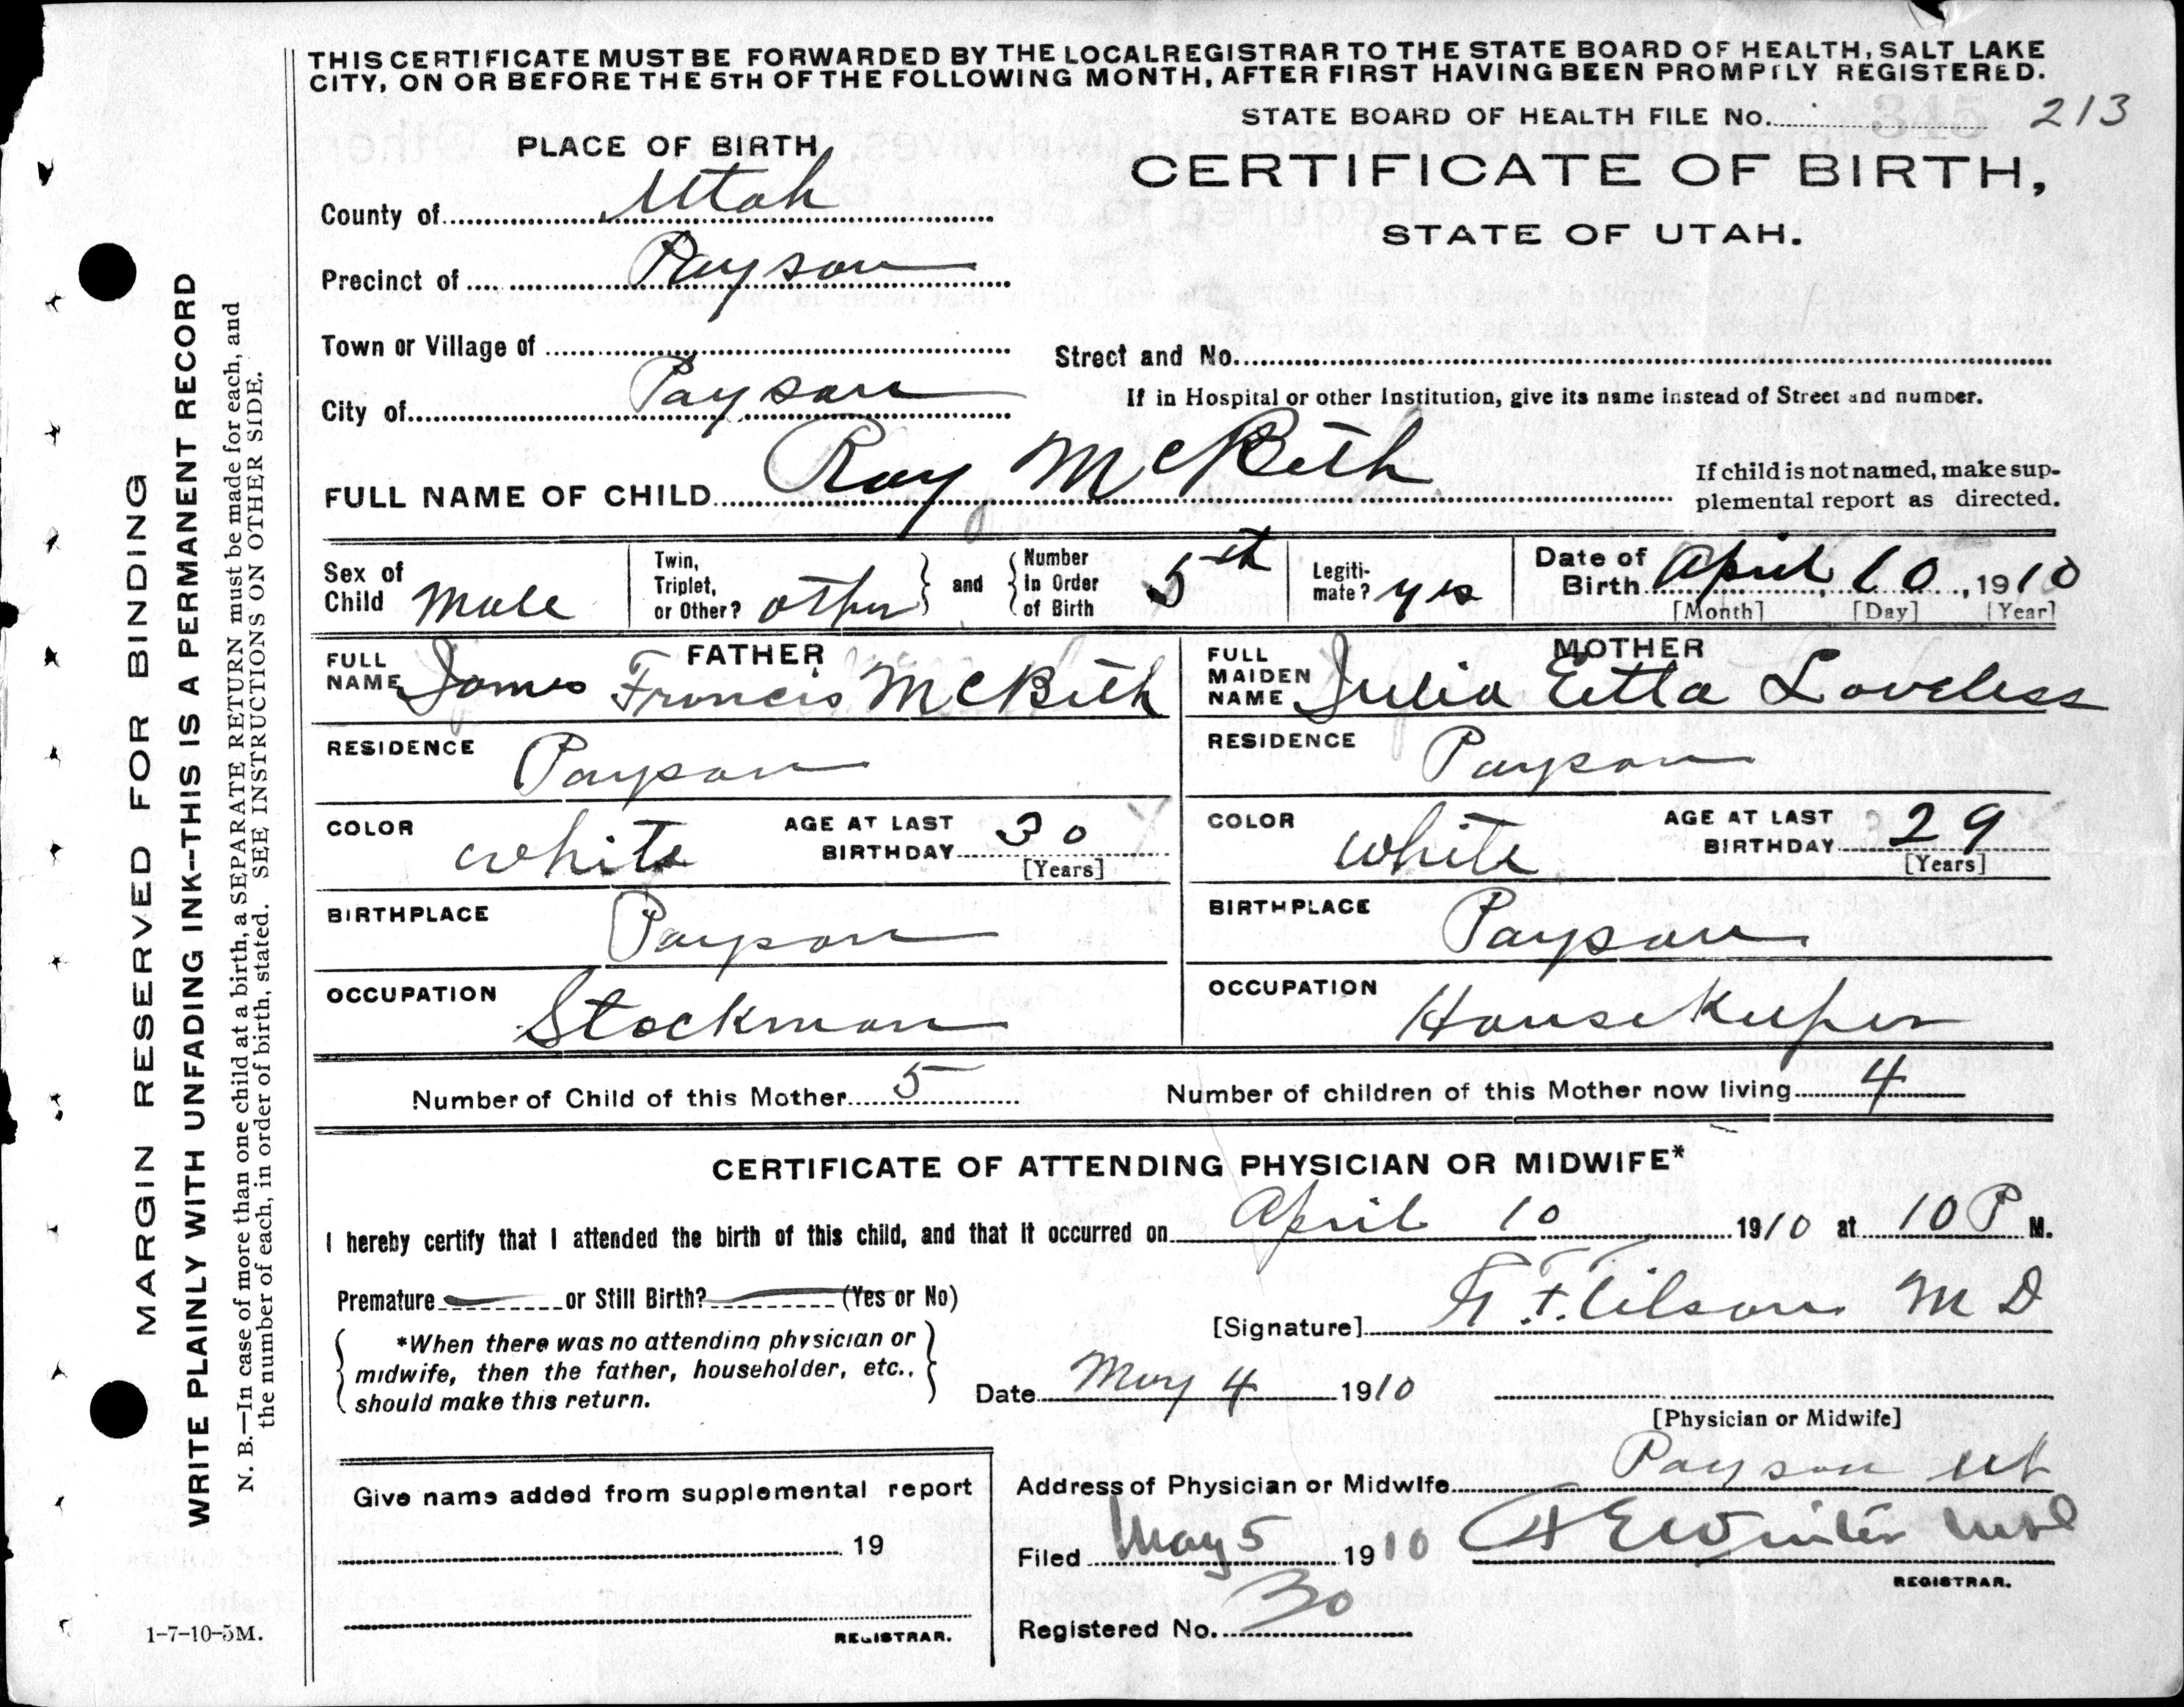 THIS CERTIFICATE MUST BE FORWARDED BY THE LOCAL REGISTRAR TO THE STATE BOARD OF HEALTH, SALT LAKE
CITY, ON OR BEFORE THE 5TH OF THE FOLLOWING MONTH, AFTER FIRST HAVING BEEN PROMPTLY REGISTERED.
STATE BOARD OF HEALTH FILE No. 213
PLACE OF BIRTH
CERTIFICATE OF BIRTH,
STATE OF UTAH.
County of Utah
Precinct of Payson
Town or Village of
Street and No.
City of Payson
If in Hospital or other Institution, give its name instead of Street and number.
FULL NAME OF CHILD Ray McBeth
If child is not named, make sup-
plemental report as directed.
Sex of Child Male
Twin, Triplet, or Other? other
and
Number In Order of Birth 5th
Legiti-mate? yes
Date of Birth April 10, 1910
[Month] [Day] [Year]
FATHER
FULL NAME James Francis McBeth
RESIDENCE Payson
COLOR white
AGE AT LAST BIRTHDAY 30
[Years]
BIRTHPLACE Payson
OCCUPATION Stockman
MOTHER
FULL MAIDEN NAME Julia Etta Loveless
RESIDENCE Payson
COLOR white
AGE AT LAST BIRTHDAY 29
[Years]
BIRTHPLACE Payson
OCCUPATION House Keeper
Number of Child of this Mother 5
Number of children of this Mother now living 4
CERTIFICATE OF ATTENDING PHYSICIAN OR MIDWIFE*
I hereby certify that I attended the birth of this child, and that it occurred on April 10 1910 at 10 P M.
Premature or Still Birth? (Yes or No)
*When there was no attending physician or
midwife, then the father, householder, etc.,
should make this return.
[Signature] M D
Date May 4 1910
[Physician or Midwife]
Give name added from supplemental report
19
REGISTRAR.
Address of Physician or Midwife Payson Ut
Filed May 5 1910
REGISTRAR.
Registered No. 30
1-7-10-5M.
MARGIN RESERVED FOR BINDING
WRITE PLAINLY WITH UNFADING INK--THIS IS A PERMANENT RECORD
N. B.—In case of more than one child at a birth, a SEPARATE RETURN must be made for each, and
the number of each, in order of birth, stated. SEE INSTRUCTIONS ON OTHER SIDE.